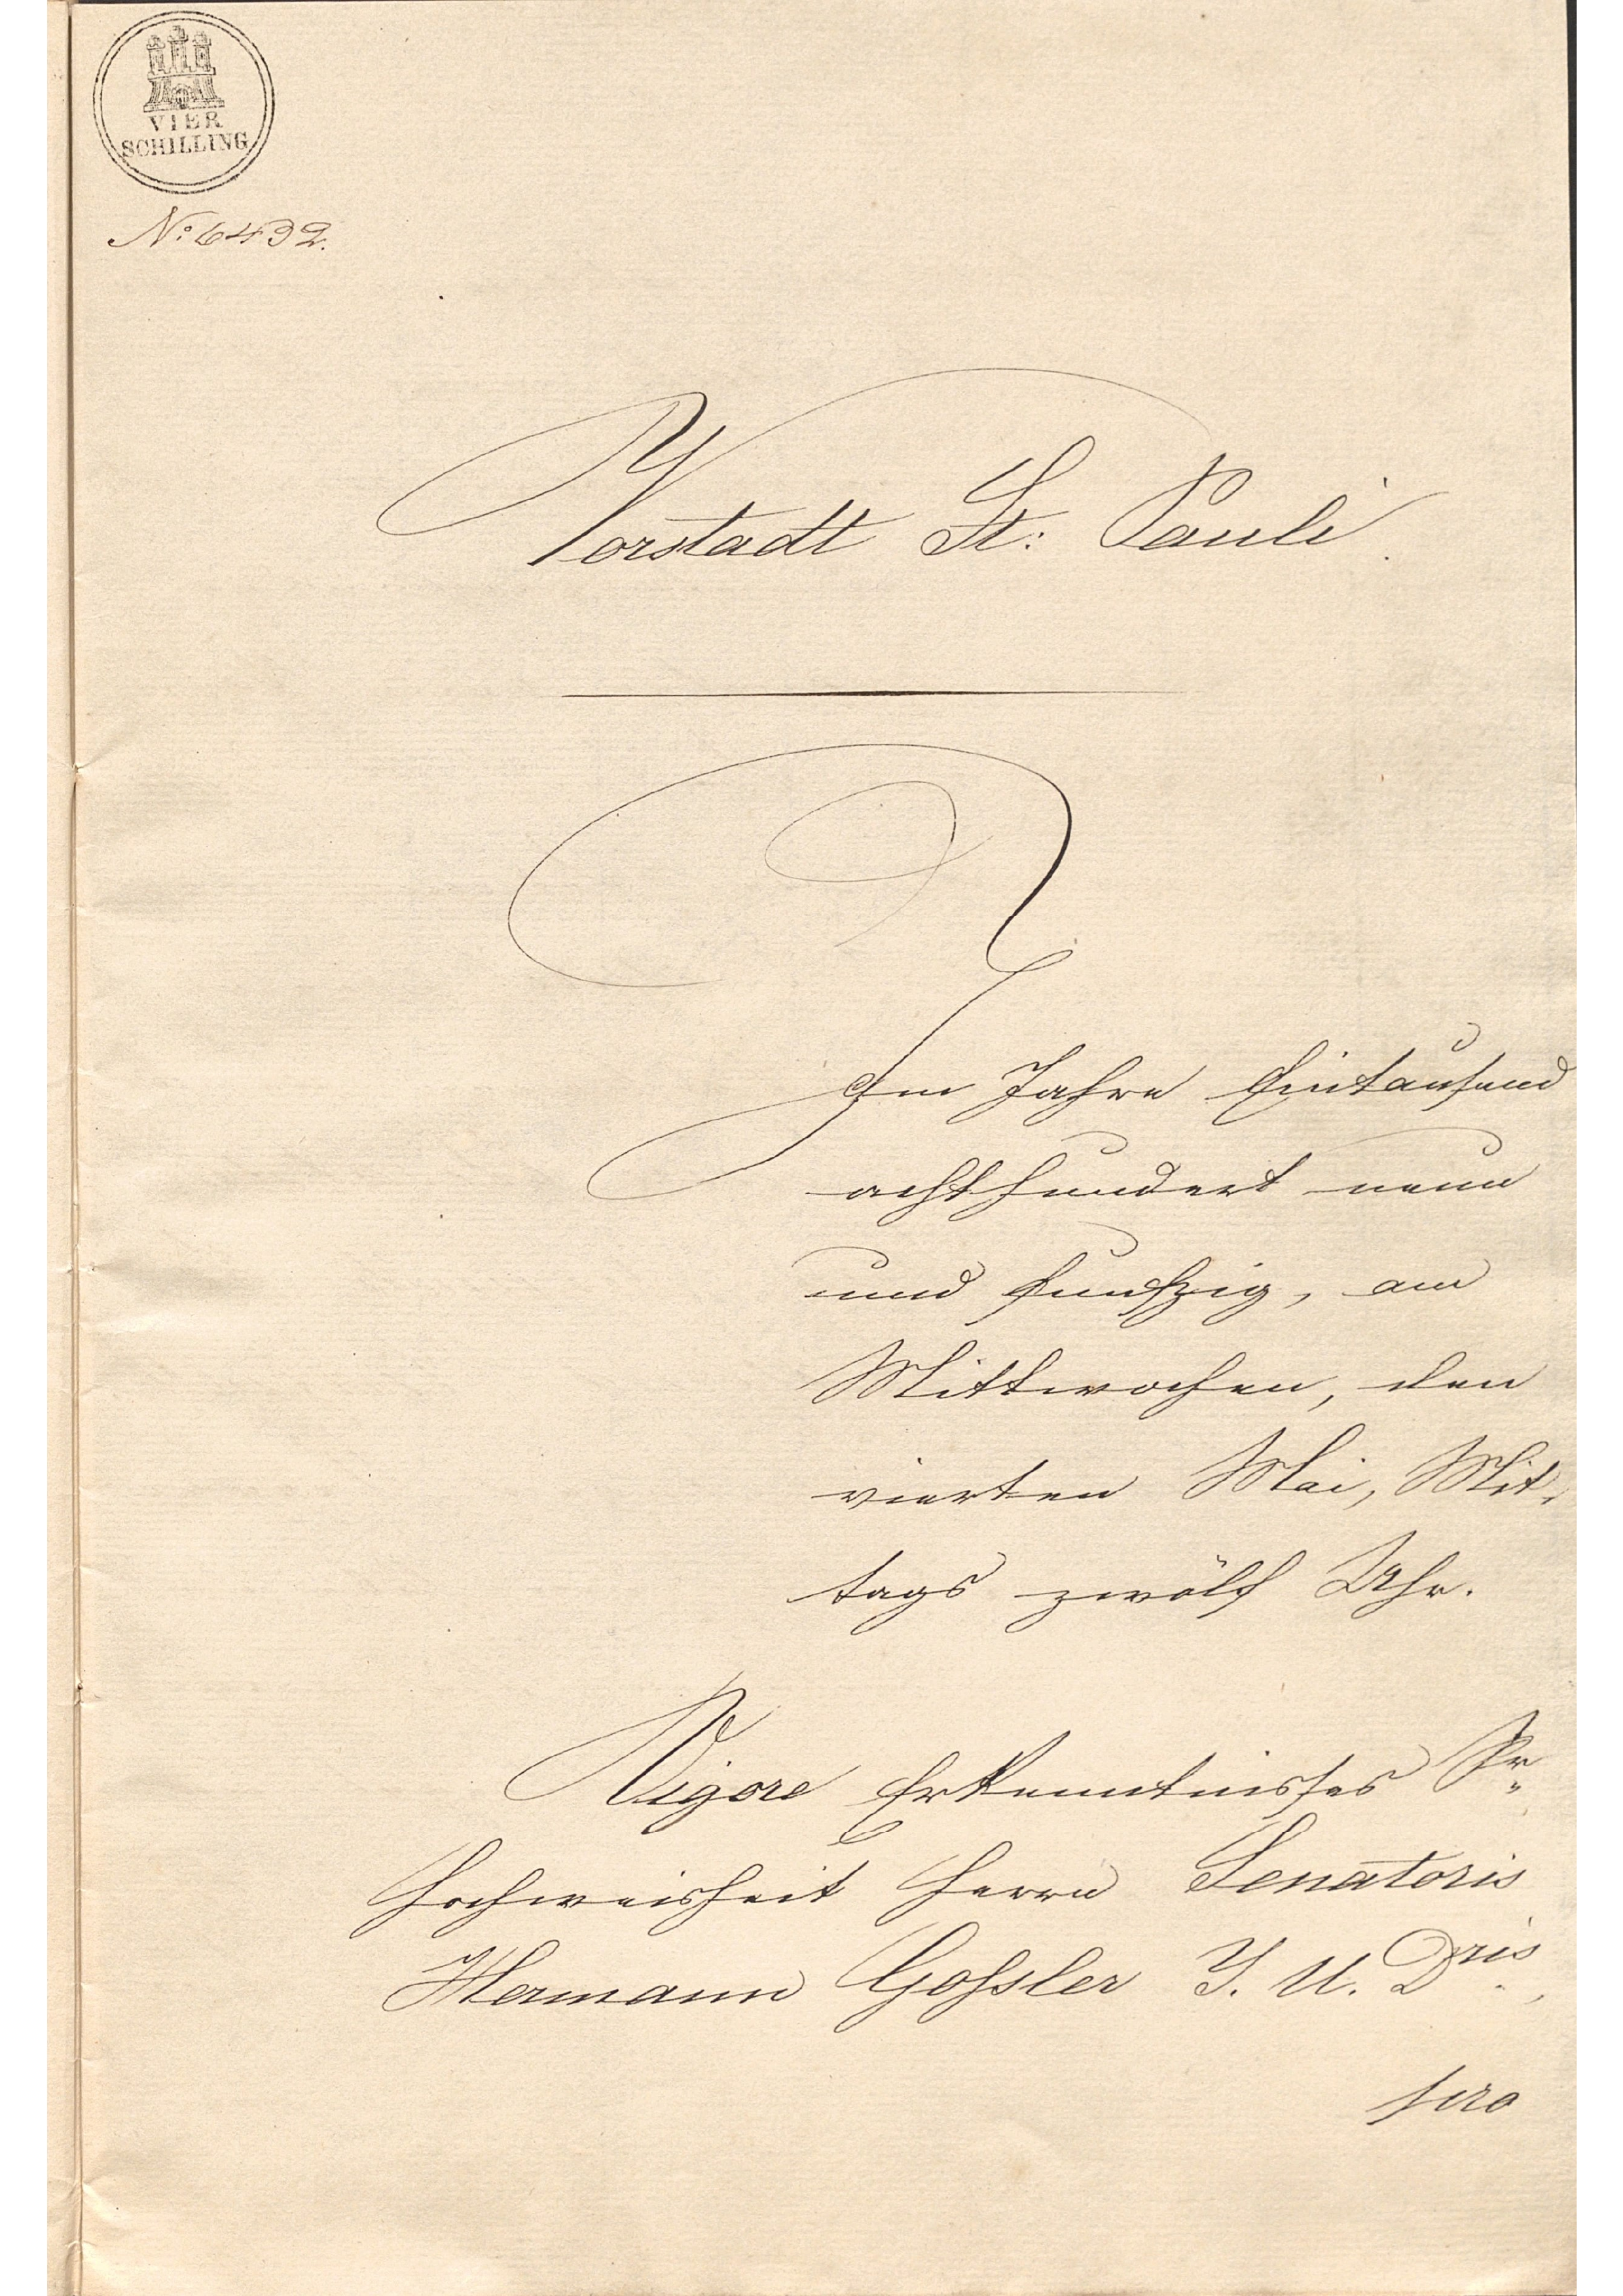 VIER
SCHILLING
No: 6432.
Vorstadt St: Pauli.
Im Jahre Eintausend
achthundert neun
und funfzig, am
Mittwochen, den
vierten Mai, Mit-
tags zwölf Uhr.
Vigore Erkenntnisses Sr.
Hochweisheit Herrn Senatoris
Hermann Goßler J. U. Dris.,
pro